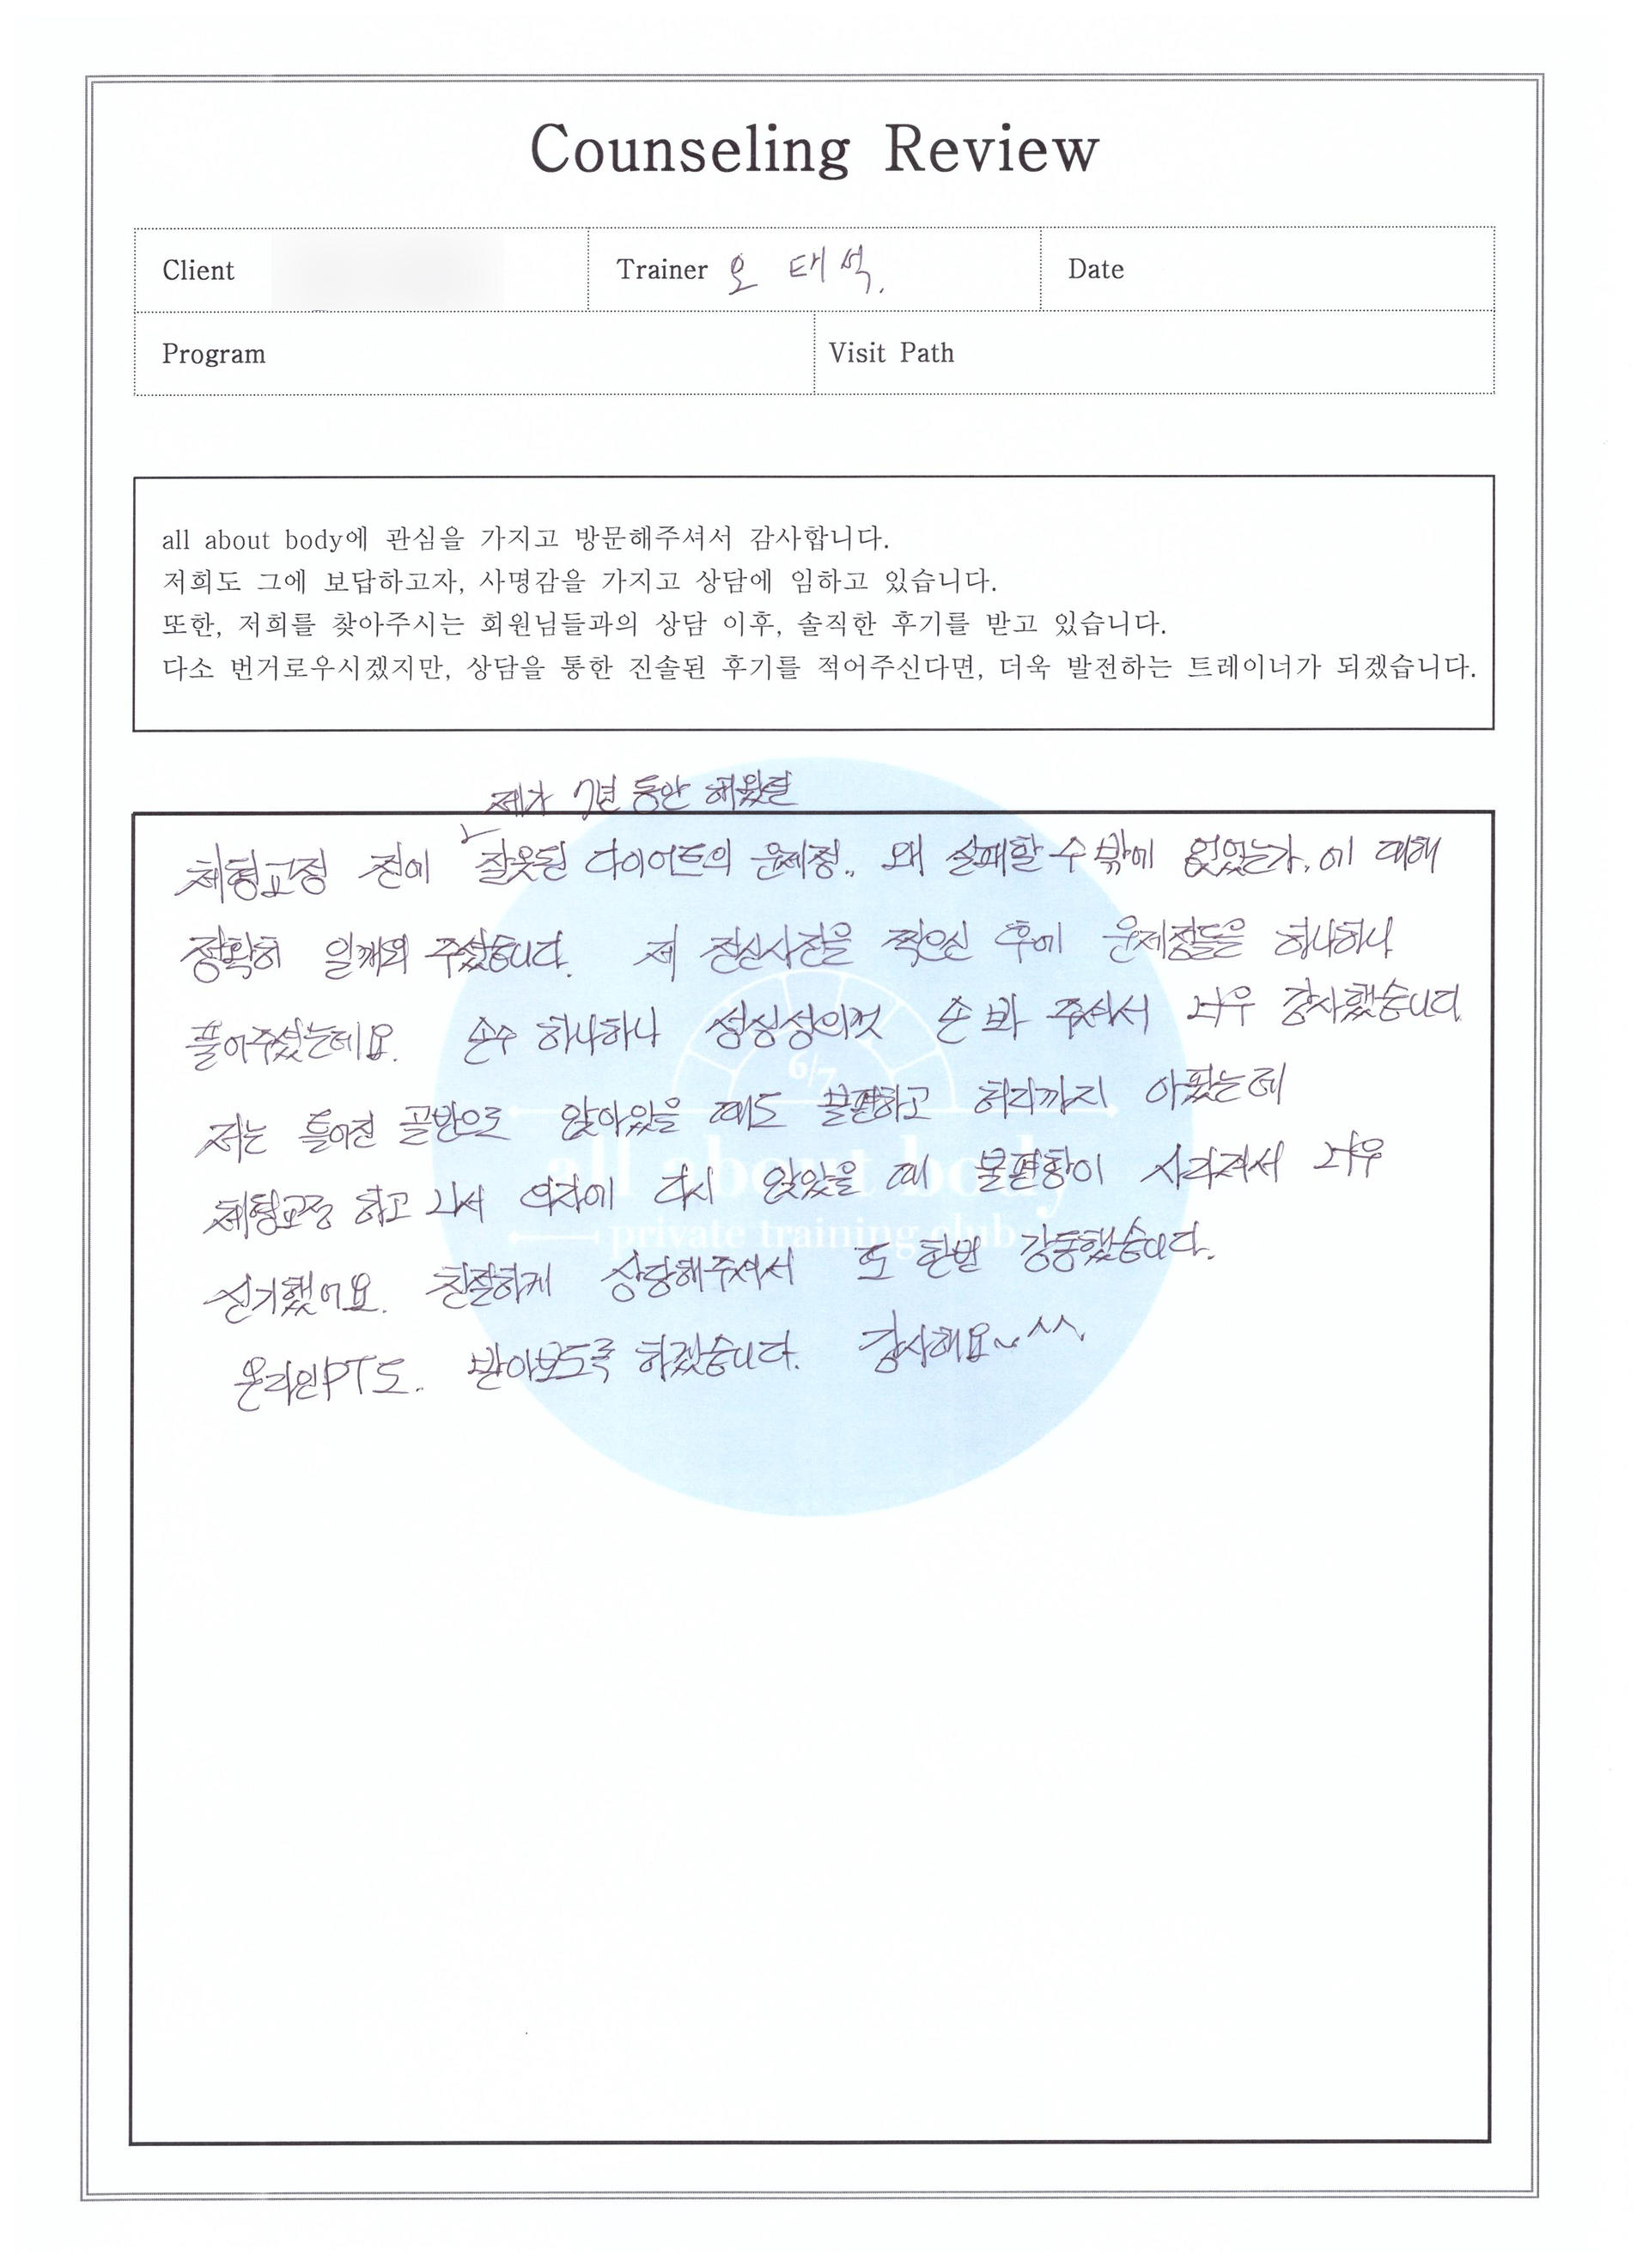 Counseling Review
Client
Trainer 오 태석.
Date
Program
Visit Path
all about body에 관심을 가지고 방문해주셔서 감사합니다.
저희도 그에 보답하고자, 사명감을 가지고 상담에 임하고 있습니다.
또한, 저희를 찾아주시는 회원님들과의 상담 이후, 솔직한 후기를 받고 있습니다.
다소 번거로우시겠지만, 상담을 통한 진솔된 후기를 적어주신다면, 더욱 발전하는 트레이너가 되겠습니다.
제가 7년 동안 해왔던
체형교정 전에 잘못된 다이어트의 문제점, 왜 실패할 수 밖에 없었는가, 에 대해
정확히 일깨워 주셨습니다. 제 전신사진을 찍으신 후에 문제점들을 하나하나
풀어주셨는데요. 손수 하나하나 성심성의껏 손 봐 주셔서 너무 감사했습니다
저는 틀어진 골반으로 앉아있을 때도 불편하고 허리까지 아팠는데
체형교정 하고 나서 의자에 다시 앉았을 때 불편함이 사라져서 너무
신기했어요. 친절하게 상담해주셔서 또 한번 감동했습니다.
온라인PT도. 받아보도록 하겠습니다. 감사해요~ ^^.
6/7
all about body
private training club